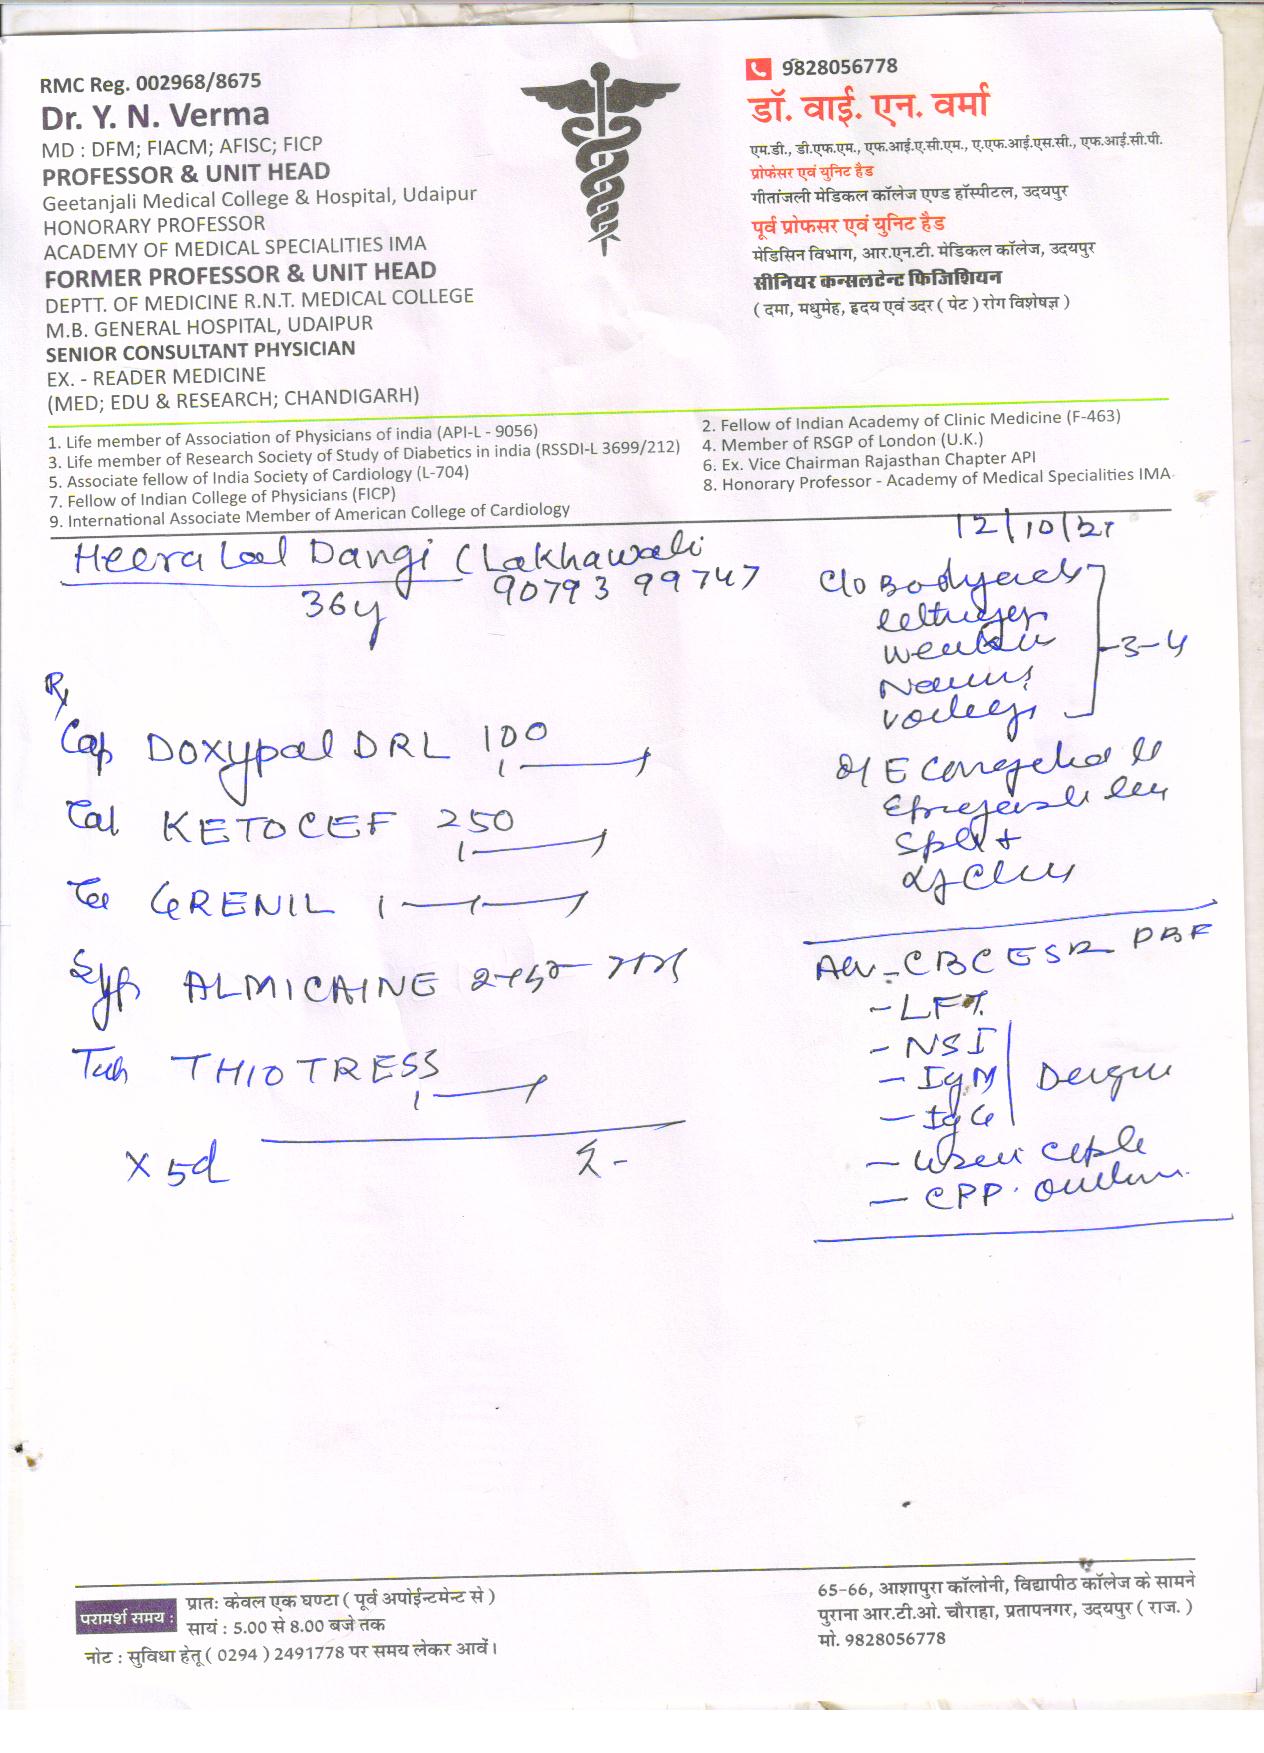 RMC Reg. 002968/8675
Dr. Y. N. Verma
MD : DFM; FIACM; AFISC; FICP
PROFESSOR & UNIT HEAD
Geetanjali Medical College & Hospital, Udaipur
HONORARY PROFESSOR
ACADEMY OF MEDICAL SPECIALITIES IMA
FORMER PROFESSOR & UNIT HEAD
DEPTT. OF MEDICINE R.N.T. MEDICAL COLLEGE
M.B. GENERAL HOSPITAL, UDAIPUR
SENIOR CONSULTANT PHYSICIAN
EX. - READER MEDICINE
(MED; EDU & RESEARCH; CHANDIGARH)
9828056778
डॉ. वाई. एन. वर्मा
एम.डी., डी.एफ.एम., एफ.आई.ए.सी.एम., ए.एफ.आई.एस.सी., एफ.आई.सी.पी.
प्रोफेसर एवं युनिट हैड
गीतांजली मेडिकल कॉलेज एण्ड हॉस्पीटल, उदयपुर
पूर्व प्रोफसर एवं युनिट हैड
मेडिसिन विभाग, आर.एन.टी. मेडिकल कॉलेज, उदयपुर
सीनियर कन्सलटेन्ट फिजिशियन
( दमा, मधुमेह, हृदय एवं उदर ( पेट ) रोग विशेषज्ञ )
1. Life member of Association of Physicians of india (API-L - 9056)
2. Fellow of Indian Academy of Clinic Medicine (F-463)
3. Life member of Research Society of Study of Diabetics in india (RSSDI-L 3699/212)
4. Member of RSGP of London (U.K.)
5. Associate fellow of India Society of Cardiology (L-704)
6. Ex. Vice Chairman Rajasthan Chapter API
7. Fellow of Indian College of Physicians (FICP)
8. Honorary Professor - Academy of Medical Specialities IMA
9. International Associate Member of American College of Cardiology
12/10/21
Heera Lal Dangi (Lakhawali
36y 90793 99747
C/o Bodyache
3-4
O/E
Rx
Cap DOXYpal DRL 100
1
Tab KETOCEF 250
1
GRENIL 1
Syp ALMICAINE
Tab THIOTRESS
1
X 5d
Adv - CBC ESR PBF
- LFT
- NSI
- IgM Dengue
- IgG
-
-
परामर्श समय : प्रातः केवल एक घण्टा ( पूर्व अपोईन्टमेन्ट से )
सायं : 5.00 से 8.00 बजे तक
नोट : सुविधा हेतू ( 0294 ) 2491778 पर समय लेकर आवें।
65-66, आशापुरा कॉलोनी, विद्यापीठ कॉलेज के सामने
पुराना आर.टी.ओ. चौराहा, प्रतापनगर, उदयपुर ( राज. )
मो. 9828056778